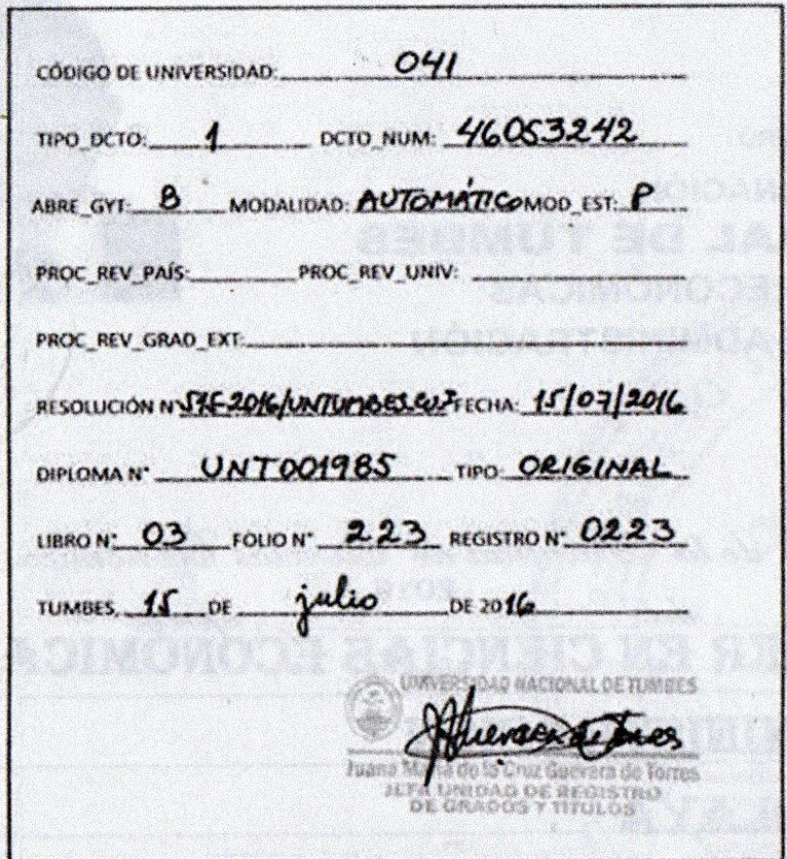 CÓDIGO DE UNIVERSIDAD: 041
TIPO_DCTO: 1 DCTO_NUM: 46053242
ABRE_GYT: B MODALIDAD: AUTOMÁTICO MOD_EST: P
PROC_REV_PAÍS: PROC_REV_UNIV:
PROC_REV_GRAD_EXT:
RESOLUCIÓN N° FECHA: 15/07/2016
DIPLOMA N° UNT001985 TIPO: ORIGINAL
LIBRO N° 03 FOLIO N° 223 REGISTRO N° 0223
TUMBES, 15 DE julio DE 2016
UNIVERSIDAD NACIONAL DE TUMBES
Juana María de la Cruz Guevara de Torres
JEFA UNIDAD DE REGISTRO
DE GRADOS Y TITULOS